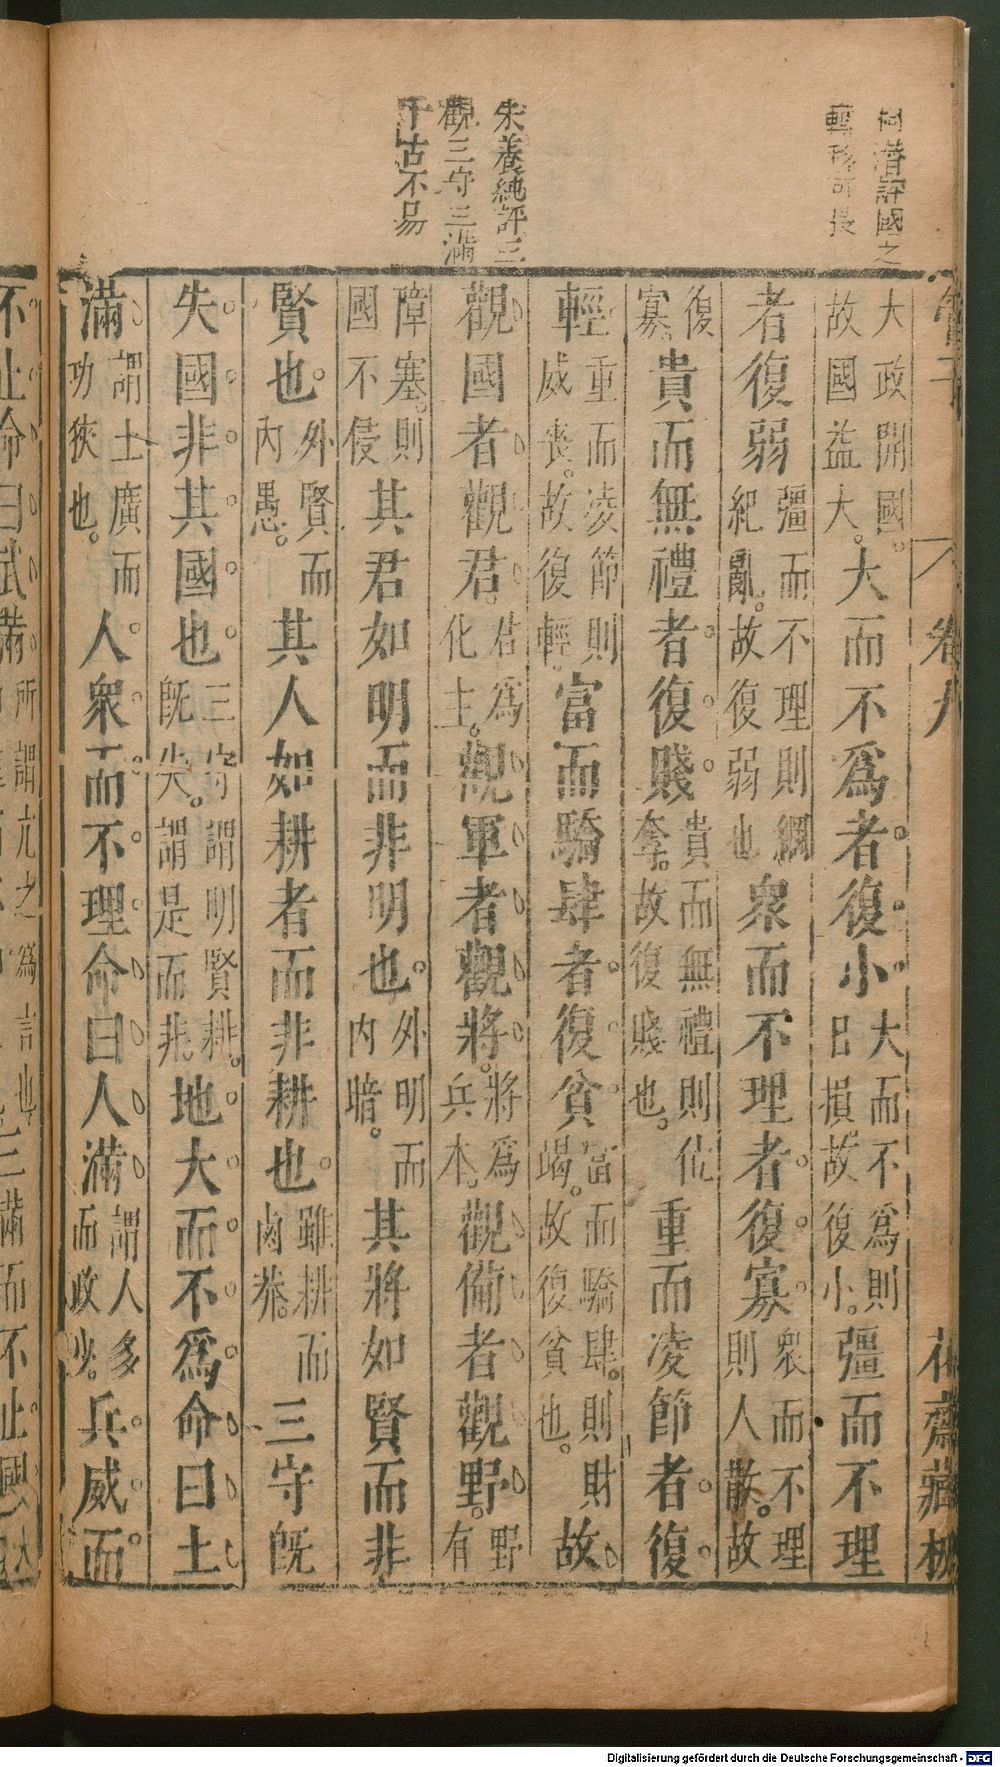 何潜評國之
朱養純評三
觀三守三滿
千古不易
管子 卷九 花齋藏板
大政開國。故國益大。大而不爲者復小大而不爲則日損故復小。彊而不理
者復弱彊而不理則綱紀亂。故復弱也衆而不理者復寡衆而不理則人散。故
復寡。貴而無禮者復賤貴而無禮則位奪。故復賤也。重而凌節者復
輕重而凌節則威喪。故復輕。富而驕肆者復貧富而驕肆。則財竭。故復貧也。故
觀國者觀君。君爲化主。觀軍者觀將。將爲兵本。觀備者觀野。野有
障塞。則國不侵其君如明而非明也。外明而内暗。其將如賢而非
賢也。外賢而内愚。其人如耕者而非耕也。雖耕而鹵莽。三守旣
失國非其國也三守謂明賢耕。旣失。謂是而非地大而不爲命曰土
滿謂土廣而功狹也。人衆而不理命曰人滿謂人多而政少。兵威而
不止命曰武滿
Digitalisierung gefördert durch die Deutsche Forschungsgemeinschaft - DFG